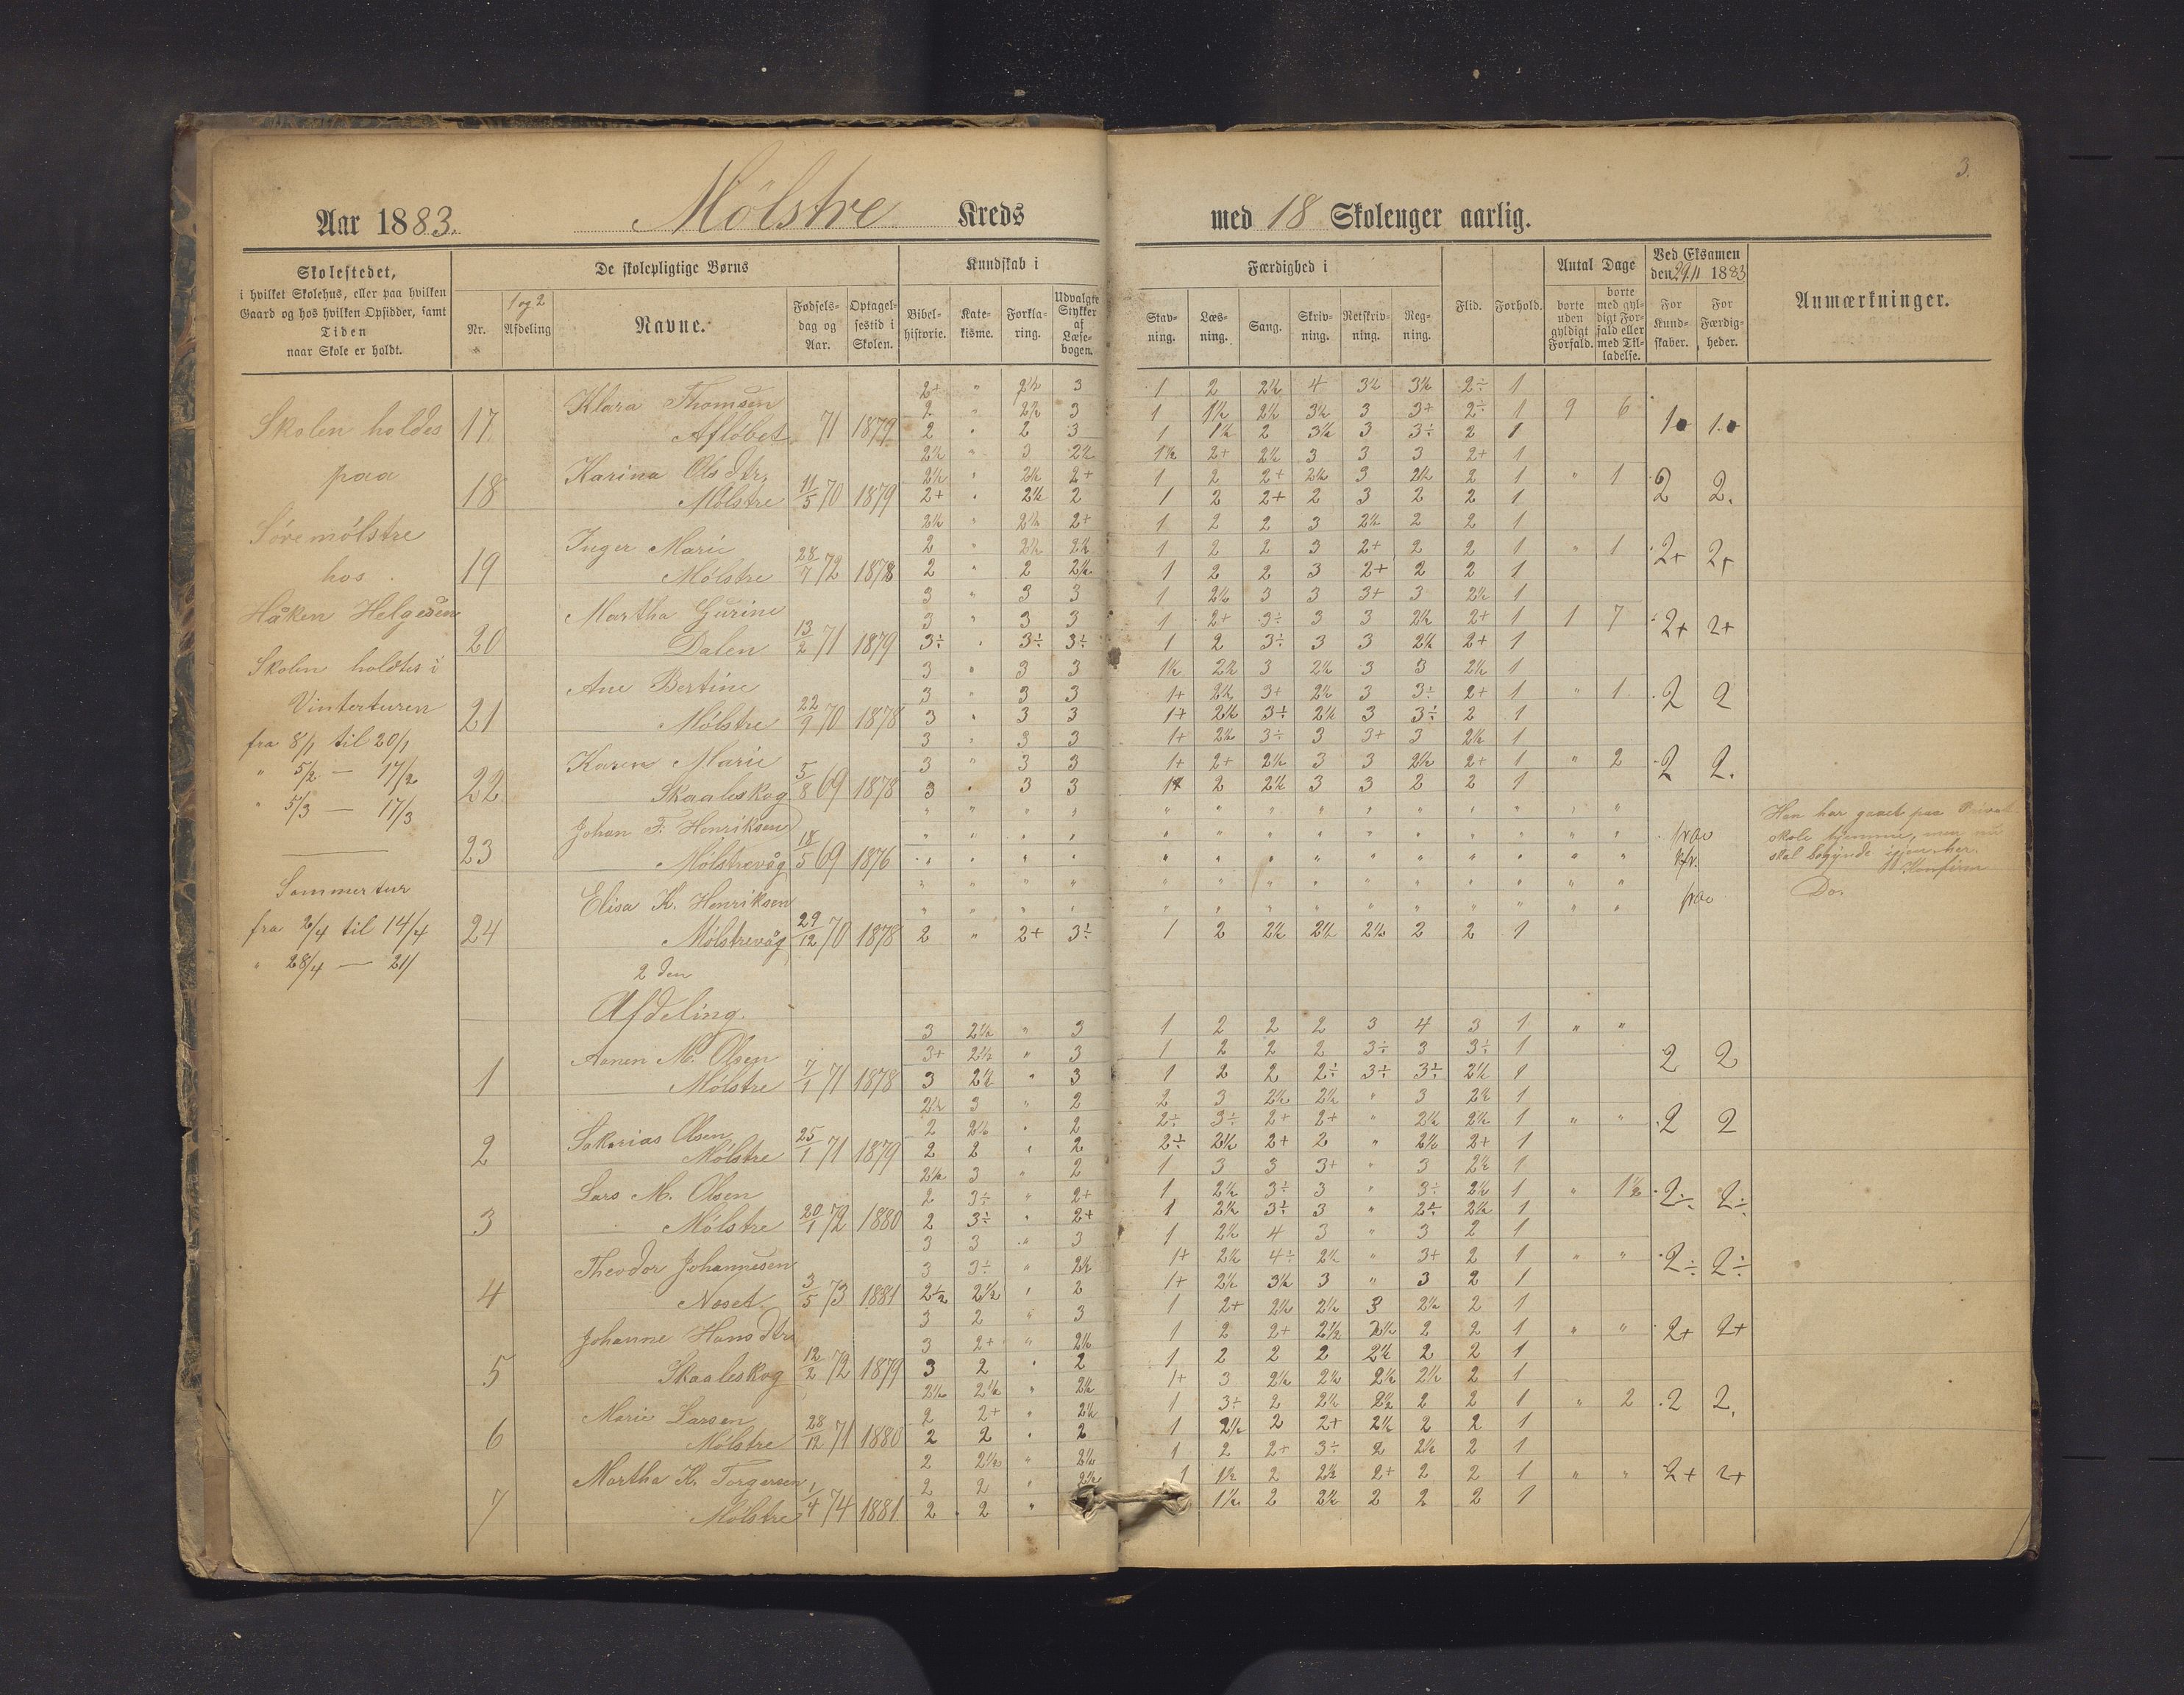 3.
Aar 1883. Mölstre Kreds med 18 Skoleuger aarlig.
Skolestedet,
i hvilket Skolehus, eller paa hvilken
Gaard og hos hvilken Opsidder, samt
Tiden
naar Skole er holdt.
De skolepligtige Børns
Nr.
1 og 2
Afdeling
Navne.
Fødsels-
dag og
Aar.
Optagel-
sestid i
Skolen.
Kundskab i
Bibel-
historie.
Kate-
kisme.
Forkla-
ring.
Udvalgte
Stykker
af
Læse-
bogen.
Færdighed i
Stav-
ning.
Læs-
ning.
Sang.
Skriv-
ning.
Retskriv-
ning.
Reg-
ning.
Flid.
Forhold.
Antal Dage
borte
uden
gyldigt
Forfald.
borte
med gyl-
digt For-
fald eller
med Til-
ladelse.
Ved Eksamen
den 29/11 1883
For
Kund-
skaber.
For
Færdig-
heder.
Anmærkninger.
Skolen holdes
paa
Søre mölstre
hos
Håken Helgesen
Skolen holdtes i
Vinterturen
fra 8/1 til 20/1
" 5/2 — 17/2
" 5/3 — 17/3
Sommertur
fra 2/4 til 14/4
" 28/4 — 21/
17 Klara Thomsen
Aflöbet 71 1879
2+ " 2½ 3 1 2 2½ 4 3½ 3½ 2÷ 1
2 " 2½ 3 1 1½ 2½ 3½ 3 3+ 2÷ 1 9 6
2 " 2 3 1 1½ 2 3½ 3 3÷ 2 1
18 Karina Olsdtr.
Mölstre 11/5 70 1879
2½ " 3 2½ 1½ 2+ 2½ 3 3 3 2+ 1
2½ " 2½ 2+ 1 2 2+ 2½ 3 2½ 2 1 " 1 2 2.
2+ " 2½ 2 1 2 2+ 2 3 2 2 1
19 Inger Marie
Mölstre 28/7 72 1878
2½ " 2½ 2+ 1 2 2 3 2½ 2 2 1
2 " 2½ 2½ 1 2 2 3 2+ 2 2 1 " 1 2+ 2+
2 " 2 2½ 1 2 2 3 2+ 2 2 1
20 Martha Gurine
Dalen 13/2 71 1879
3 " 3 3 1 2½ 3 3 3+ 3 2½ 1
3 " 3 3 1 2+ 3÷ 3 3 2½ 2+ 1 1 7 2+ 2+
3÷ " 3÷ 3÷ 1 2 3÷ 3 3 2½ 2+ 1
21 Ane Bertine
Mölstre 22/9 70 1878
3 " 3 3 1½ 2½ 3 2½ 3 3 2½ 1
3 " 3 3 1+ 2½ 3+ 2½ 3 3÷ 2+ 1 " 1 2 2
3 " 3 3 1+ 2½ 3÷ 2½ 3 3÷ 2 1
22 Karen Marie
Skaaleskog 5/8 69 1878
3 " 3 3 1+ 2½ 3÷ 3 3+ 3 2½ 1
3 " 3 3 1+ 2+ 2½ 3 3 2½ 2+ 1 " 2 2 2.
3 " 3 3 1+ 2 2½ 3 3 2 2 1
23 Johan F. Henriksen
Mölstrevåg 18/5 69 1876
Han har gaaet paa Privat-
skole hjemme, men nu
skal begynde igjen her.
24 Elisa K. Henriksen
Mölstrevåg 29/12 70 1878
Do.
2 " 2+ 3÷ 1 2 2½ 2½ 2½ 2 2 1
2den
Afdeling.
1 Annen M. Olsen
Mölstre 7/1 71 1878
3 2½ " 3 1 2 2 2 3 4 3 1 " "
3+ 2½ " 3 1 2 2 2 3÷ 3 3÷ 1 2 2
3 2½ " 3 1 2 2 2÷ 3÷ 3÷ 2½ 1
2 Sakarias Olsen
Mölstre 25/1 71 1879
2½ 3 " 2 2 3 2½ 2½ " 3 2½ 1
2 2½ " 2 2÷ 3÷ 2+ 2+ " 2½ 2½ 1 " " 2 2
2 2 " 2 2÷ 2½ 2+ 2 " 2½ 2+ 1
3 Lars M. Olsen
Mölstre 20/1 72 1880
2½ 3 " 2 1 3 3 3+ " 3 2½ 1
2 3÷ " 2+ 1 2½ 3÷ 3 " 3÷ 2½ 1 " 1½ 2÷ 2÷
2 3÷ " 2+ 1 2½ 3÷ 3 " 2÷ 2½ 1
4 Theodor Johannesen
Næset 3/5 73 1881
3 3 " 3 1 2½ 4 3 " 3 2 1
3 3÷ " 2½ 1+ 2½ 4÷ 2½ " 3+ 2 1 " " 2÷ 2÷
2½ 2½ " 2 1+ 2½ 3½ 3 " 3 2 1
5 Johanne Hansdtr
Skaaleskog 12/2 72 1879
3 2 " 3 1 2+ 2½ 2½ 3 2½ 2 1
3 2+ " 2½ 1 2 2+ 2½ 2½ 2 2 1 " " 2+ 2+
3 2 " 2 1 2 2 2 2½ 2 2 1
6 Marie Larsen
Mölstre 28/12 71 1880
2½ 2½ " 2½ 1+ 3 2½ 2½ 2½ 2½ 2 1
2 2+ " 2½ 1 3÷ 2 2½ 2½ 2 2 1 " 2 2 2.
2 2 " 2 1 2½ 2 2+ 2½ 2 2 1
7 Martha K. Torgersen
Mölstre 1/4 74 1881
2 2½ " 2½ 1 2 2+ 3÷ 2 2½ 2 1
2 2 " 2½ 1 1½ 2 2½ 2+ 2 2 1 " " 2+ 2+
2 2 " 1½ 2 2½ 2 2 2 1